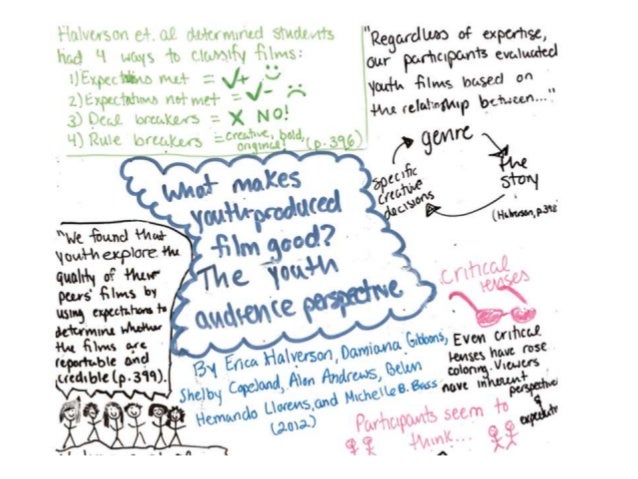 Halverson et. al determined students
had 4 ways to classify films:
1) Expectations met = ✓+
2) Expectations not met = ✓-
3) Deal breakers = X NO!
4) Rule breakers = creative, bold,
original! (p.396)
"Regardless of expertise,
our participants evaluated
youth films based on
the relationship between..."
genre
the
story
specific
creative
decisions
(Halverson, p.398
What makes
youth-produced
film good?
The youth
audience perspective
"We found that
youth explore the
quality of their
peers' films by
using expectations to
determine whether
the films are
reportable and
credible (p.399).
By Erica Halverson, Damiana Gibbons,
Shelby Copeland, Alon Andrews, Belen
Hernando Llorens, and Michelle B. Bass
(2012)
critical
lenses
Even critical
lenses have rose
coloring. Viewers
have inherent
perspective
&
Participants seem to
think...